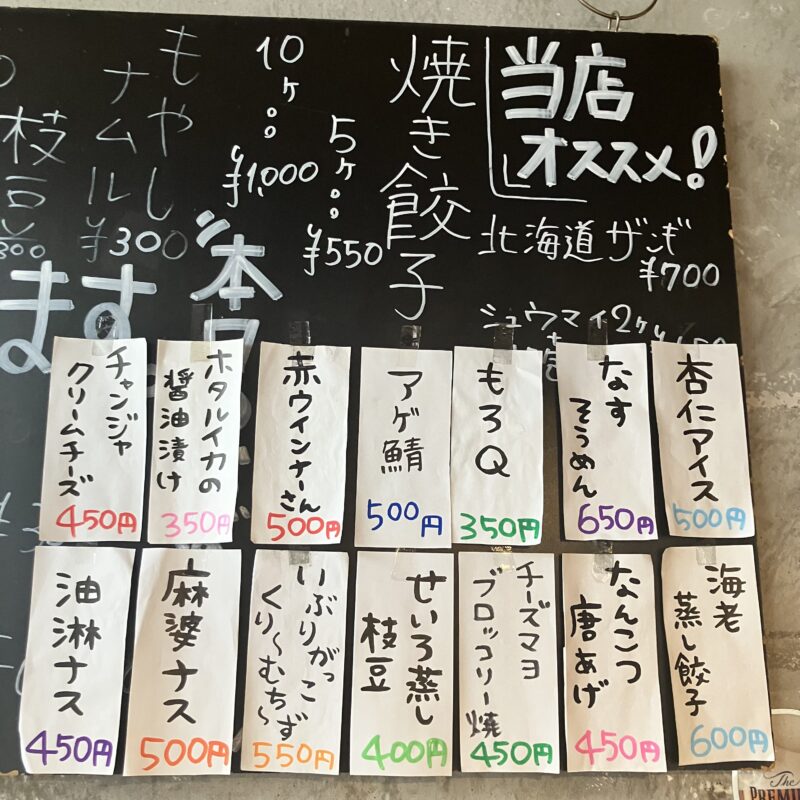 当店
オススメ!
北海道ザンギ
¥700
シュウマイ2ケ
焼き餃子
5ケ。。
¥550
10ケ。。
¥1,000
もやし
ナムル
¥300
枝豆
ます
杏仁アイス
500円
なす
そうめん
650円
もろQ
350円
アゲ鯖
500円
赤ウインナーさん
500円
ホタルイカの
醤油漬け
350円
チャンジャ
クリームチーズ
450円
海老
蒸し餃子
600円
なんこつ
唐あげ
450円
チーズマヨ
ブロッコリー焼
450円
せいろ蒸し
枝豆
400円
いぶりがっこ
くり~むち~ず
550円
麻婆ナス
500円
油淋ナス
450円
The